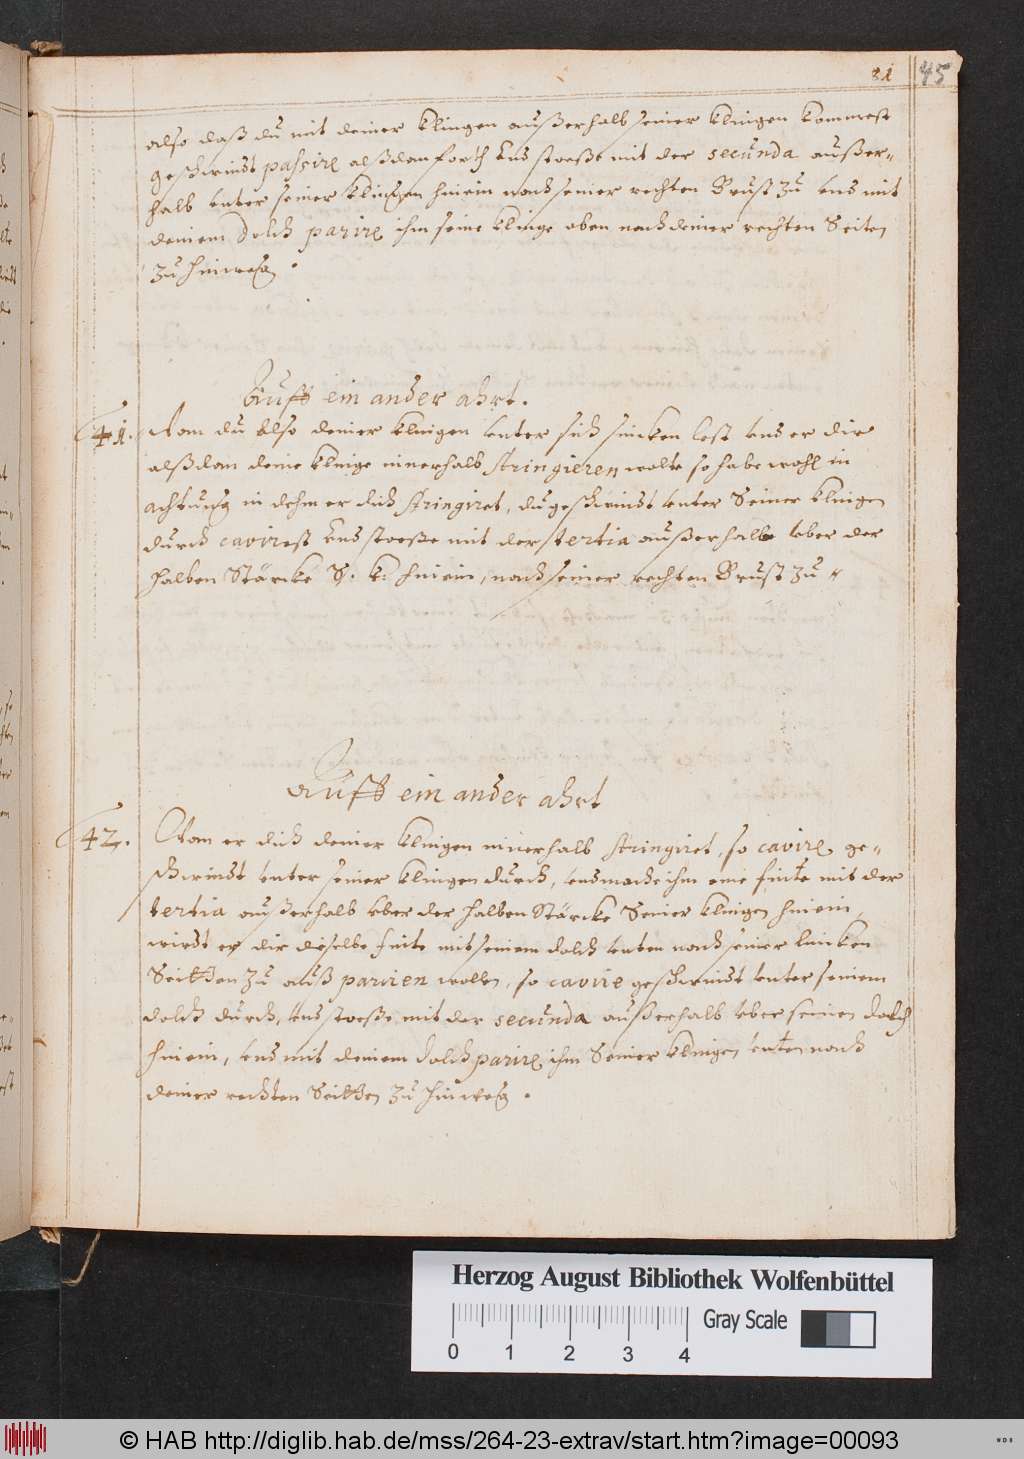 81 45
also daß du mit deiner klingen außerhalb seiner klingen kommest
geschwindt passire alßdan forth und stoeße mit der secunda außer-
halb unter seiner klingen hinein nach seiner rechten Brust zu und mit
deinem Dolch parire ihm seine klinge oben nach deiner rechten Seiten
zu hinweg.
Auff ein ander ahrt.
41. Wan du also deiner klingen unter sich sincken lest und er dir
alßdan deine klinge innerhalb stringieren wolte so habe wohl in
achtung in dehm er dich stringiret, du geschwindt unter Seiner klingen
durch cavirest und stoeße mit der tertia außerhalb uber der
halben Stärcke S. k. hinein, nach seiner rechten Brust zu
Auff ein ander ahrt
42. Wan er dich deiner klingen innerhalb stringiret, so cavire ge-
schwindt unter seiner klingen durch, und mache ihm eine finte mit der
tertia außerhalb uber der halben Stärcke Seiner klingen hinein,
wirdt er dir dieselbe finte mit seinem dolch unten nach seiner lincken
Seitten zu auß pariren wollen, so cavire geschwindt unter seinem
dolch durch, und stoeße mit der secunda außerhalb uber seinen dolch
hinein, und mit deinem dolch parire ihm Seiner klingen unten nach
deiner rechten Seitten zu hinweg.
Herzog August Bibliothek Wolfenbüttel
Gray Scale
0 1 2 3 4
© HAB http://diglib.hab.de/mss/264-23-extrav/start.htm?image=00093